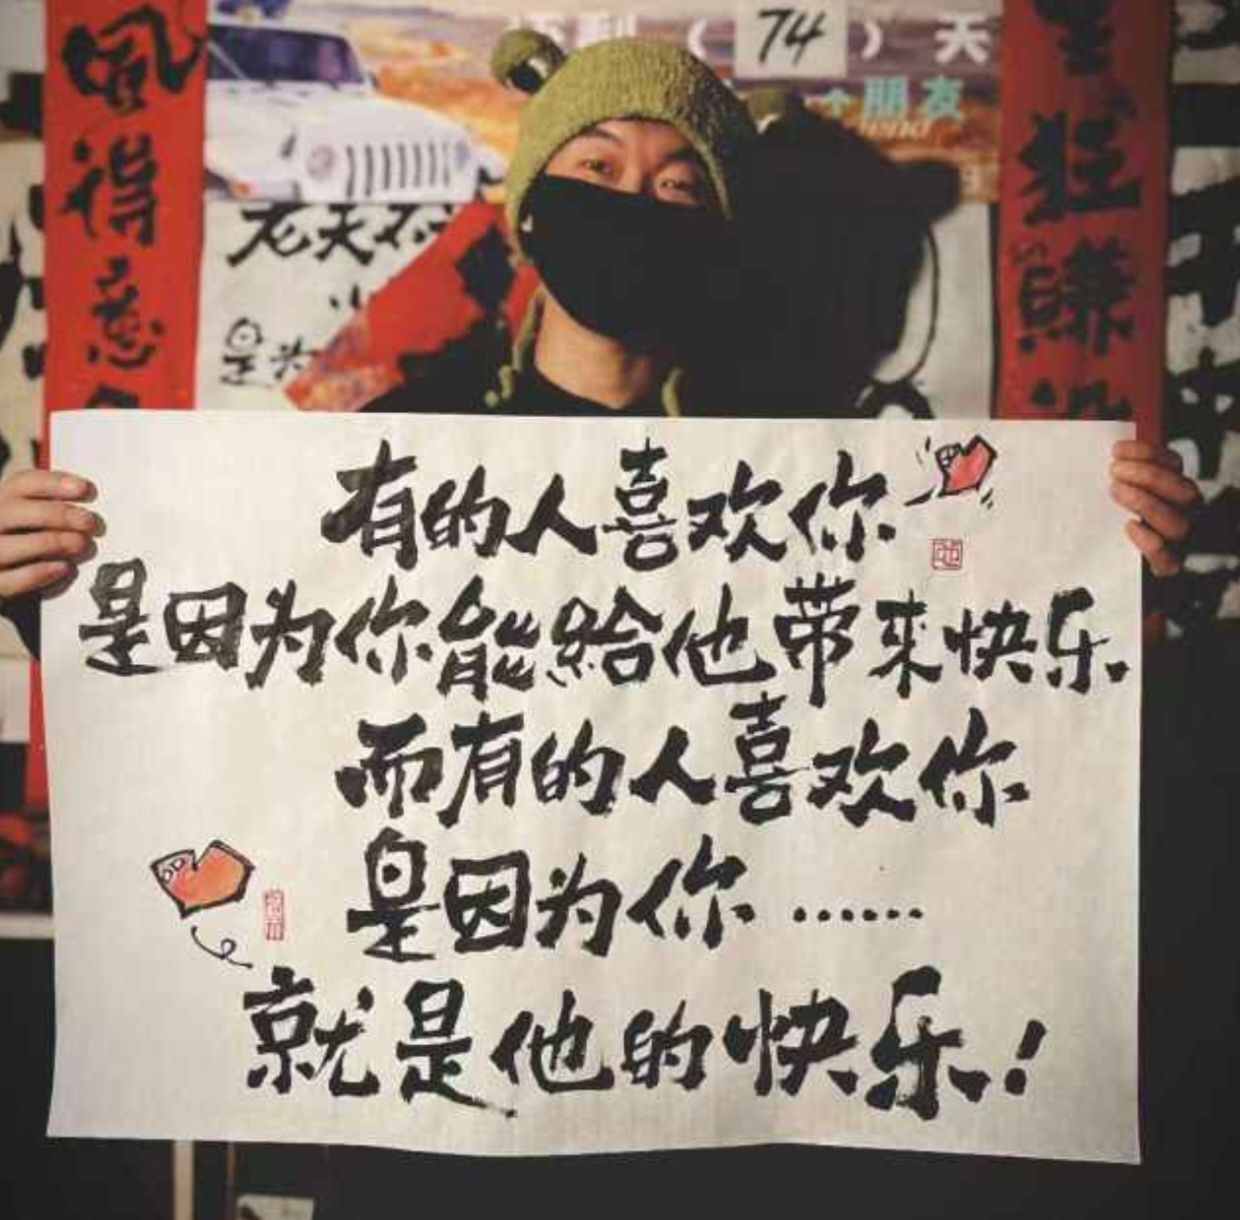 (74)天
个朋友
風得意
狂赚
老天不
是为
有的人喜欢你
是因为你能給他带来快乐.
而有的人喜欢你
是因为你……
就是他的快乐!